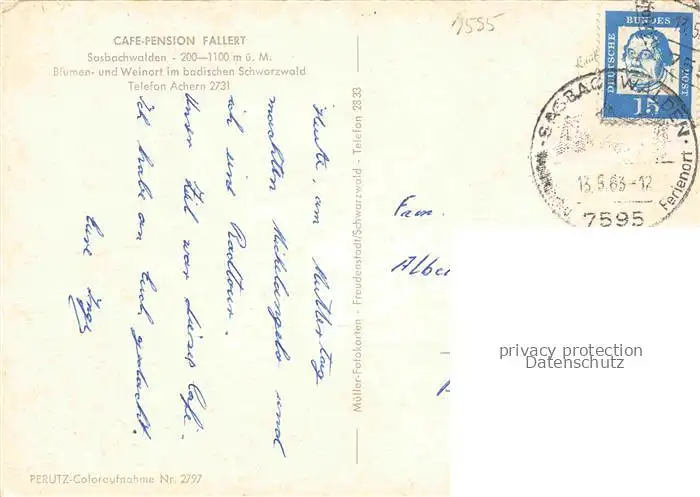 1555
CAFE-PENSION FALLERT
Sasbachwalden - 200—1100 m ü. M.
Blumen- und Weinort im badischen Schwarzwald
Telefon Achern 2731
Heute, am Muttertag
machten Michelangelo und
ich eine Radtour.
Unser Ziel war dieses Café.
Ich habe an Euch gedacht.
Eure Inge
Müller-Fotokarten - Freudenstadt/Schwarzwald - Telefon 2833
DEUTSCHE BUNDESPOST
15
SASBACHWALDEN
13.5.63-12
Ferienort
7595
Fam.
Albe
privacy protection
Datenschutz
PERUTZ-Coloraufnahme Nr. 2797